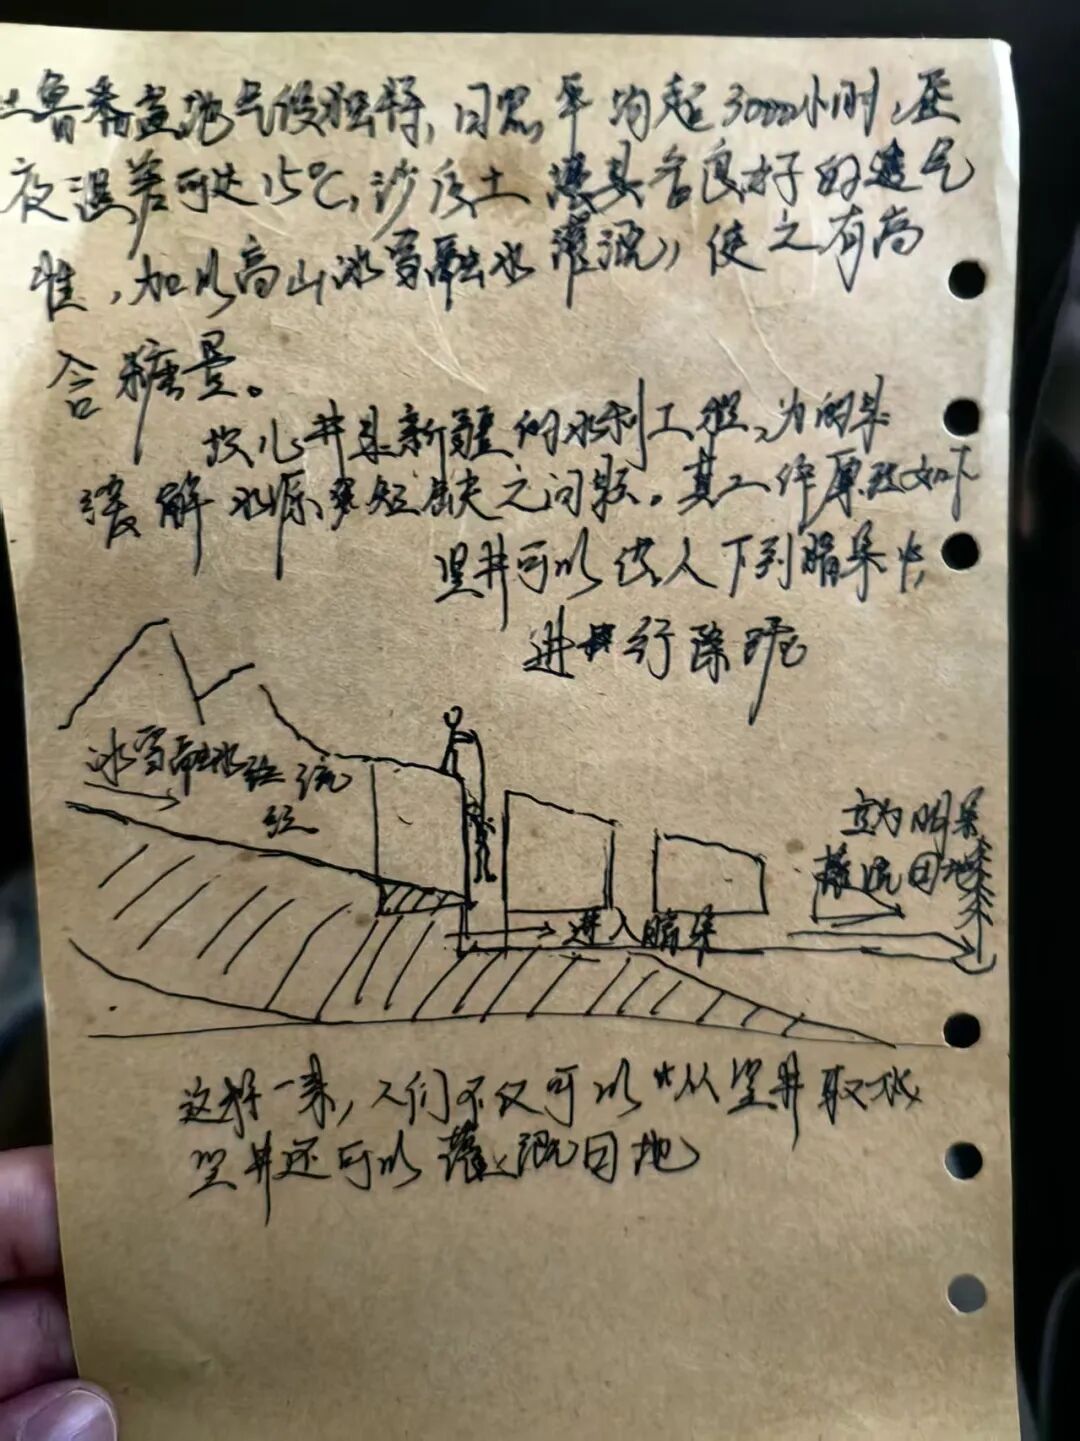 吐鲁番盆地气候独特，日照平均超3000小时，昼
夜温差可达15℃，沙质土壤具备良好的透气
性，加以高山冰雪融水灌溉，使之有高
含糖量。
坎儿井是新疆的水利工程，为的是
缓解水源短缺之问题。其工作原理如下
竖井可以供人下到暗渠中，
进行除淤
冰雪融水流
经
变为明渠
灌溉田地
进入暗渠
这样一来，人们不仅可以从竖井取水
竖井还可以灌溉田地